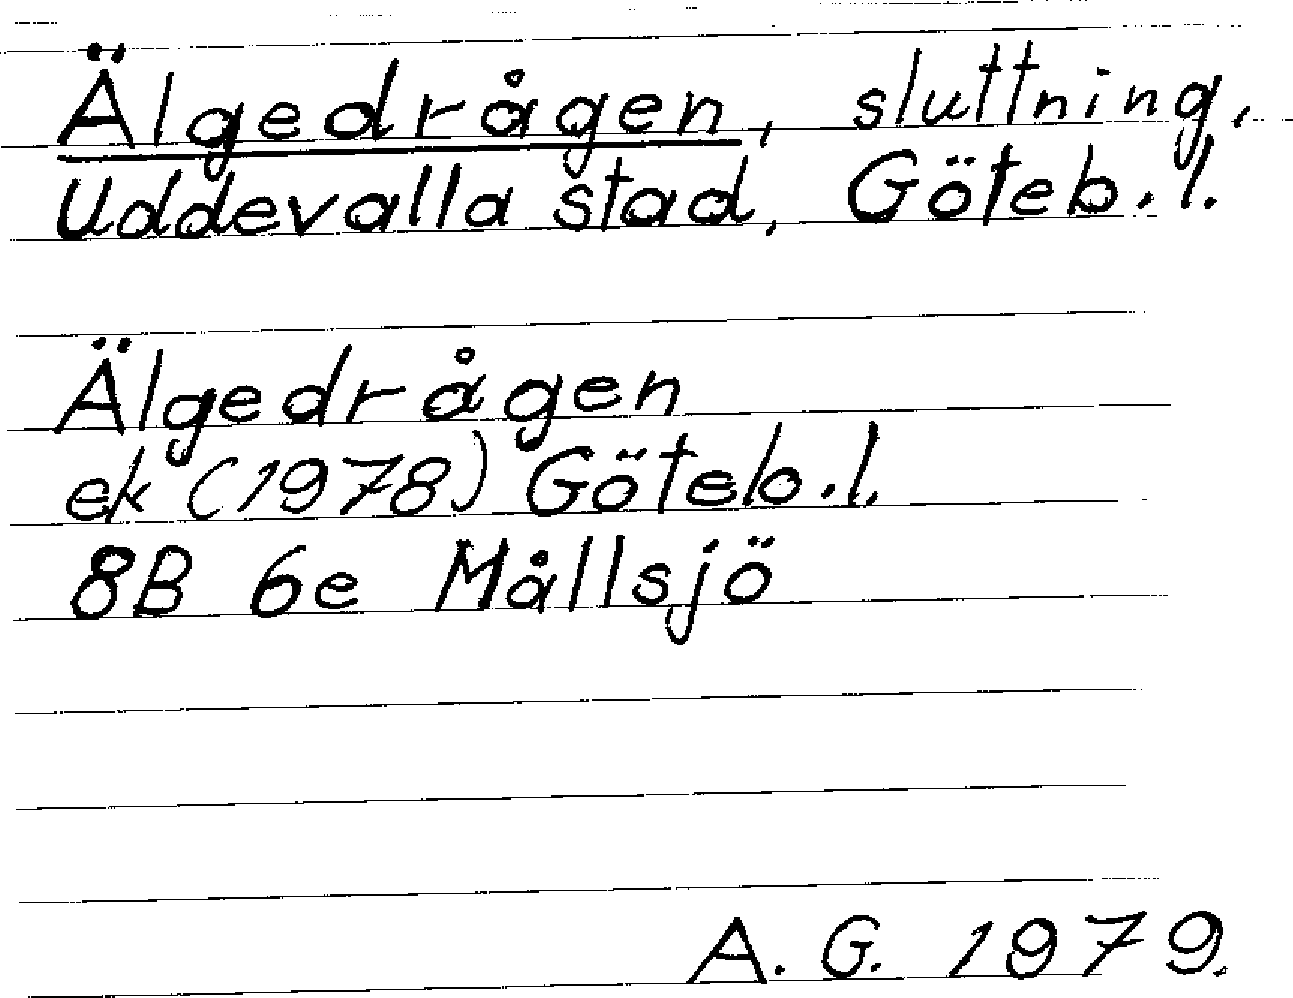 Älgedrågen, sluttning,
Uddevalla stad, Göteb. l.
Älgedrågen
ek (1978) Göteb. l.
8B 6e Mållsjö
A. G. 1979.